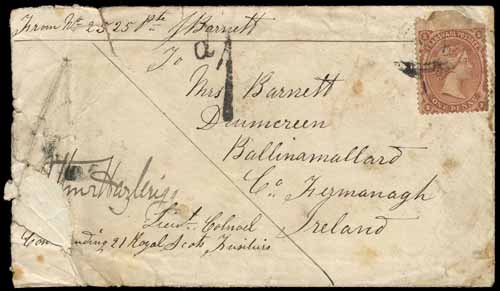 From No 2525 Pte J Barnett
To
Mrs Barnett
Drumcreen
Ballinamallard
Co. Fermanagh
Ireland
Lieut. Colonel
Commanding 21 Royal Scots Fusiliers
ONE PENNY